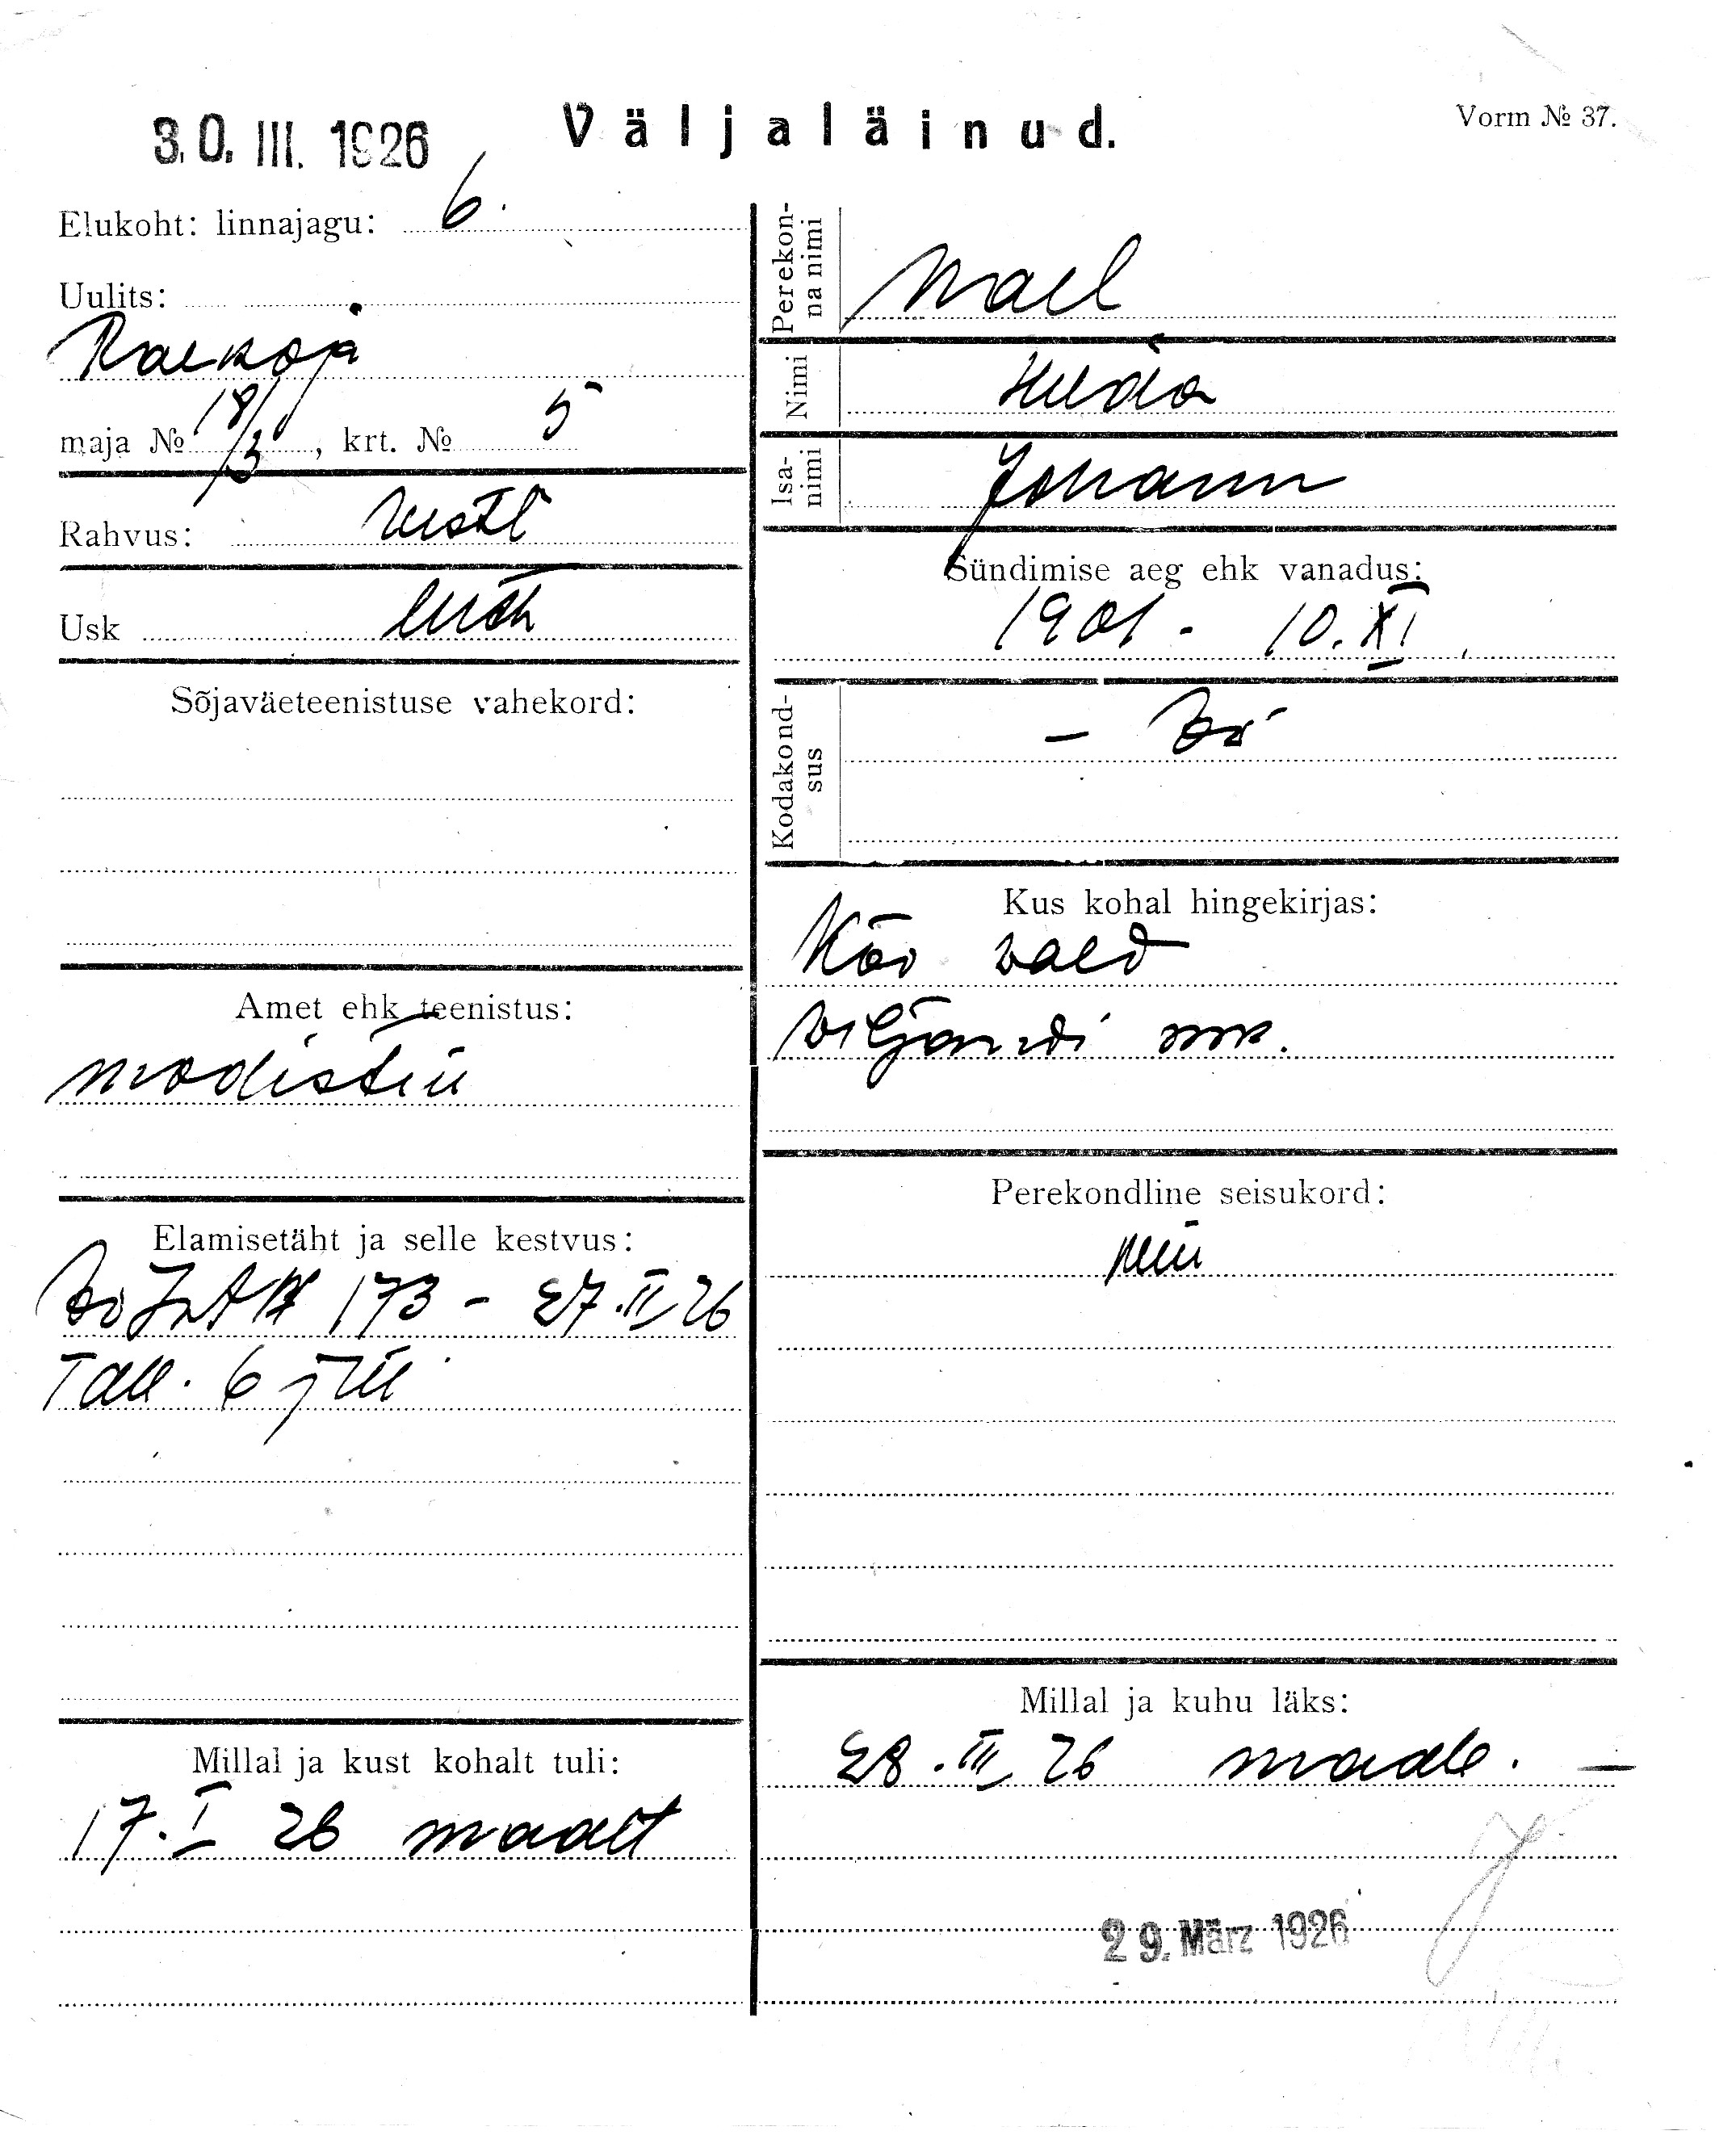 30. III. 1926
Väljaläinud.
Vorm № 37.
Elukoht: linnajagu: 6.
Uulits:
Raekoja
maja № 18/3, krt. № 5
Rahvus: eestl
Usk luth
Sõjaväeteenistuse vahekord:
Amet ehk teenistus:
modistin
Elamisetäht ja selle kestvus:
173 - 27.II 26
Tall. 6 j
Millal ja kust kohalt tuli:
17.I 26 maalt
Perekonna nimi
Mael
Nimi
Hilda
Isanimi
Johann
Sündimise aeg ehk vanadus:
1901 - 10.XI
Kodakondsus
Kus kohal hingekirjas:
Kõo vald
Viljandi mk.
Perekondline seisukord:
Millal ja kuhu läks:
28.III 26 maale.
29. März 1926